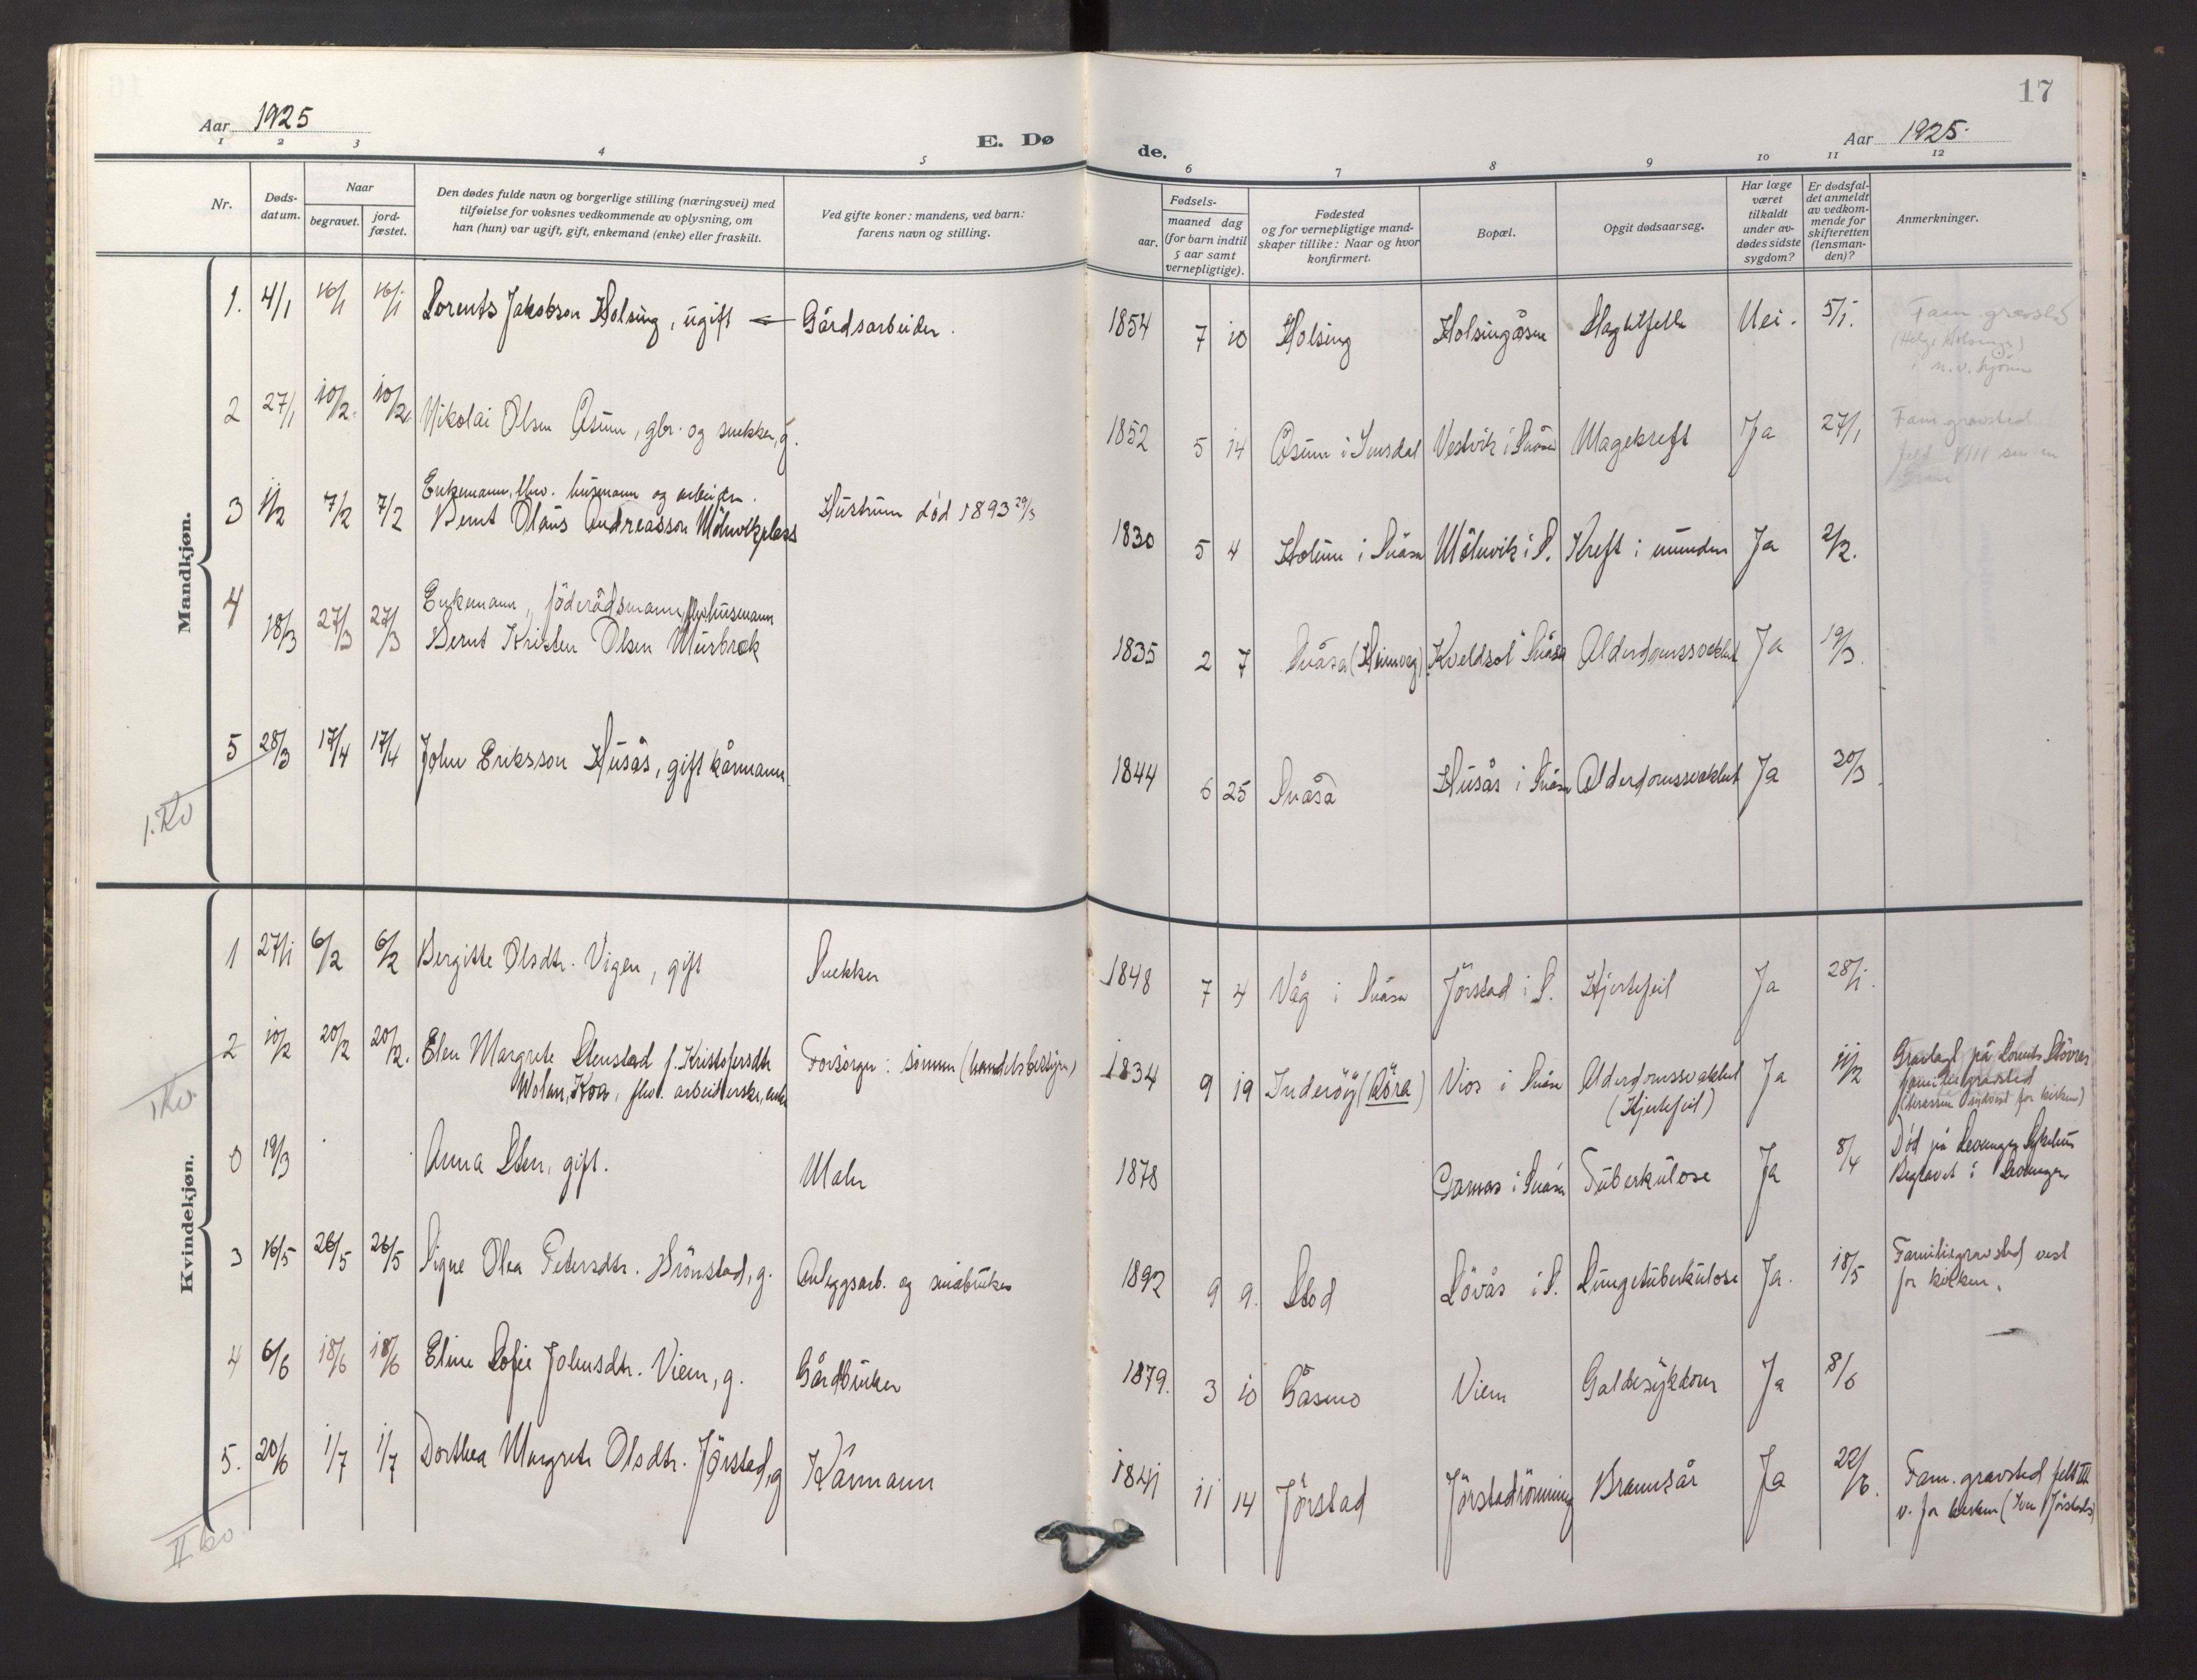 17
Aar 1925
E. Dø
de.
Aar 1925.
1 2 3 4 5 6 7 8 9 10 11 12
Nr.
Døds-
datum.
Naar
begravet.
jord-
fæstet.
Den dødes fulde navn og borgerlige stilling (næringsvei) med
tilføielse for voksnes vedkommende av oplysning, om
han (hun) var ugift, gift, enkemand (enke) eller fraskilt.
Ved gifte koner: mandens, ved barn:
farens navn og stilling.
Fødsels-
aar.
maaned dag
(for barn indtil
5 aar samt
vernepligtige).
Fødested
og for vernepligtige mand-
skaper tillike: Naar og hvor
konfirmert.
Bopæl.
Opgit dødsaarsag.
Har læge
været
tilkaldt
under av-
dødes sidste
sygdom?
Er dødsfal-
det anmeldt
av vedkom-
mende for
skifteretten
(lensman-
den)?
Anmerkninger.
Mandkjøn.
1. 4/1 16/1 16/1 Lorents Jakobson Holsing, ugift Gårdsarbeider. 1854 7 10 Holsing Holsingåsen Slagtilfelle Nei. 5/1. Fam. gravsted
(Helge Holsings)
2 27/1 10/2. 10/2. Nikolai Olsen Åsum, gbr. og snekker, g. 1852 5 14 Åsum i Imsdal Vestvik i Snåsa Magekreft Ja 27/1 Fam. gravsted
felt VIII
Enkemann, fhv. husmann og arbeider.
3 1/2 7/2 7/2 Bernt Olaus Andreasson Mölnvikplass Hustrum död 1893 29/3 1830 5 4 Holum i Snåsa Mölnvik i S. Kreft i munden Ja 2/2.
Enkemann, föderådsmann, fhv. husmann
4 18/3 27/3 27/3 Bernt Kristen Olsen Murbrek 1835 2 7 Snåsa (Heimveg) Kveldsol i Snåsa Alderdomssvakhet Ja 19/3.
5 28/3 17/4 17/4 John Eriksson Husås, gift kårmann 1844 6 25 Snåsa Husås i Snåsa Alderdomssvakhet Ja 30/3.
1. Kv
Kvindekjøn.
1 27/1 6/2 6/2 Bergitte Olsdtr. Vigen, gift Snekker 1848 7 4 Våg i Snåsa Jörstad i S. Hjertefeil Ja 28/1.
2 10/2 20/2 20/2. Elen Margrete Stenstad f. Kristofersdtr Forsörger: sönnen (handelsbestyrer) 1834 9 19 Inderöy (Röra) Vios i Snåsa Alderdomssvakhet Ja 11/2 Gravlagt på Lorents Stövras
fhv. arbeiderske, enke (Hjertefeil) familiegravsted
(terassen sydvest for kirken)
I Kv.
0 19/3 Anna Sten, gift. Maler 1878 i Snåsa Tuberkulose Ja 8/4 Död på Levanger Sykehus
Begravet i Levanger
3 16/5 26/5 26/5 Signe Olea Petersdtr. Brönstad, g. Anleggsarb. og småbruker 1892 9 9. Stod Lövås i S. Lungetuberkulose Ja. 18/5 Familiegravsted vest
for kirken.
4 6/6 18/6 18/6 Eline Sofie Johnsdtr. Viem, g. Gårdbruker 1879. 3 10 Gåsmo Viem Galdesykdom Ja 8/6
5. 20/6 1/7 1/7 Dorthea Margrete Olsdtr. Jörstad, g Kårmann 1841 11 14 Jörstad Jörstadrönning Brannsår Ja 22/6. Fam. gravsted felt III
v. for kirken (Jörstads)
II kv